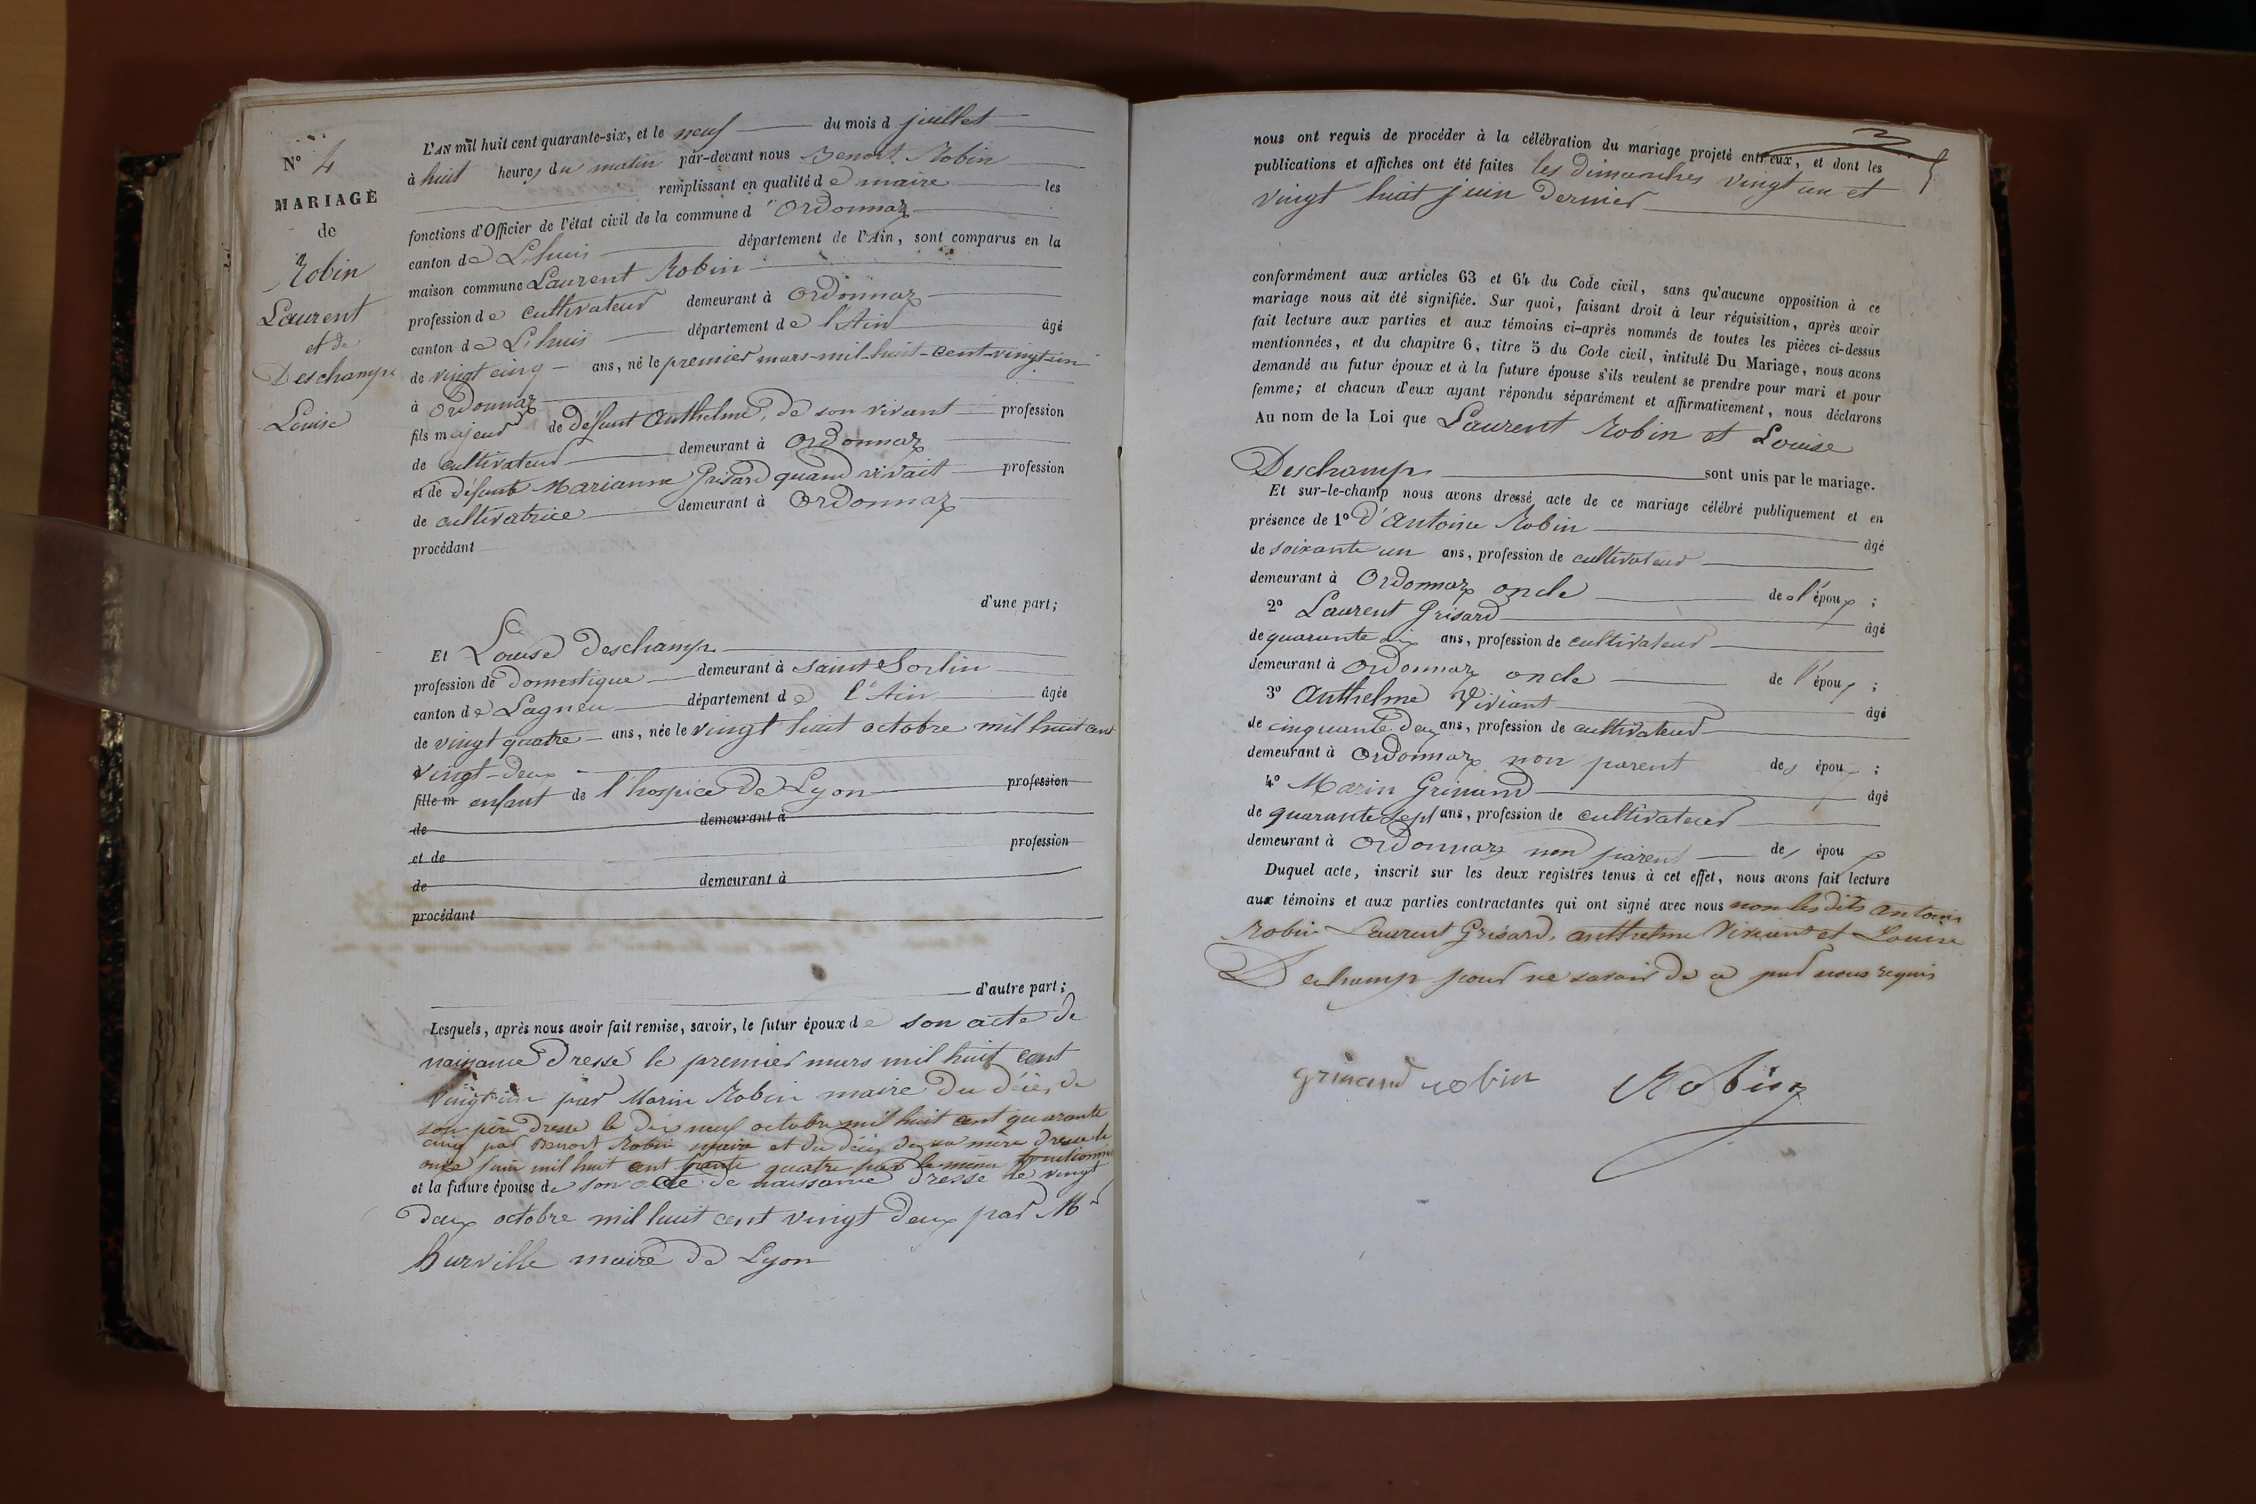 N° 4
MARIAGE
de
Robin
Laurent
et de
Deschamps
Louise
L'AN mil huit cent quarante-six, et le neuf du mois d juillet
à huit heures du matin par-devant nous Benoit Robin
remplissant en qualité de maire les
fonctions d'Officier de l'état civil de la commune d'Ordonnaz
canton de Lhuis département de l'Ain, sont comparus en la
maison commune Laurent Robin
profession de cultivateur demeurant à Ordonnaz
canton de Lhuis département de l'Ain âgé
de vingt cinq ans, né le premier mars mil-huit-cent-vingt un
à Ordonnaz
fils majeur de défunt Anthelme, de son vivant profession
de cultivateur demeurant à Ordonnaz
et de défunte Marianne Grisard quand vivait profession
de cultivatrice demeurant à Ordonnaz
procédant
d'une part;
Et Louise Deschamps
profession de Domestique demeurant à Saint Sorlin
canton de Lagneu département de l'Ain âgée
de vingt quatre ans, née le vingt huit octobre mil huit cent
vingt-deux
fille m enfant de l'hospice de Lyon profession
de demeurant à
et de profession
de demeurant à
procédant
d'autre part;
Lesquels, après nous avoir fait remise, savoir, le futur époux de son acte de
naissance dressé le premier mars mil huit cent
vingt un par Marin Robin maire du décès de
son père dressé le dix neuf octobre mil huit cent quarante
cinq par Benoit Robin maire et du décès de sa mère dressé le
onze juin mil huit cent trente quatre par le même fonctionnaire
et la future épouse de son acte de naissance dressé le vingt
deux octobre mil huit cent vingt deux par Mr
hurville maire de Lyon
nous ont requis de procéder à la célébration du mariage projeté entr'eux, et dont les
publications et affiches ont été faites les dimanches vingt un et
vingt huit juin dernier
conformément aux articles 63 et 64 du Code civil, sans qu'aucune opposition à ce
mariage nous ait été signifiée. Sur quoi, faisant droit à leur réquisition, après avoir
fait lecture aux parties et aux témoins ci-après nommés de toutes les pièces ci-dessus
mentionnées, et du chapitre 6, titre 5 du Code civil, intitulé Du Mariage, nous avons
demandé au futur époux et à la future épouse s'ils veulent se prendre pour mari et pour
femme; et chacun d'eux ayant répondu séparément et affirmativement, nous déclarons
Au nom de la Loi que Laurent Robin et Louise
Deschamps sont unis par le mariage.
Et sur-le-champ nous avons dressé acte de ce mariage célébré publiquement et en
présence de 1° d'Antoine Robin âgé
de soixante un ans, profession de cultivateur
demeurant à Ordonnaz oncle de l'époux ;
2° Laurent Grisard âgé
de quarante six ans, profession de cultivateur
demeurant à Ordonnaz oncle de l'époux ;
3° Anthelme Viviant âgé
de cinquante deux ans, profession de cultivateur
demeurant à Ordonnaz non parent des époux ;
4° Marin Grinand âgé
de quarante sept ans, profession de cultivateur
demeurant à Ordonnaz non parent des époux
Duquel acte, inscrit sur les deux registres tenus à cet effet, nous avons fait lecture
aux témoins et aux parties contractantes qui ont signé avec nous non les dits Antoine
Robin Laurent Grisard, anthelme Viviant et Louise
Deschamps pour ne savoir de ce par nous requis
grinand robin Robin